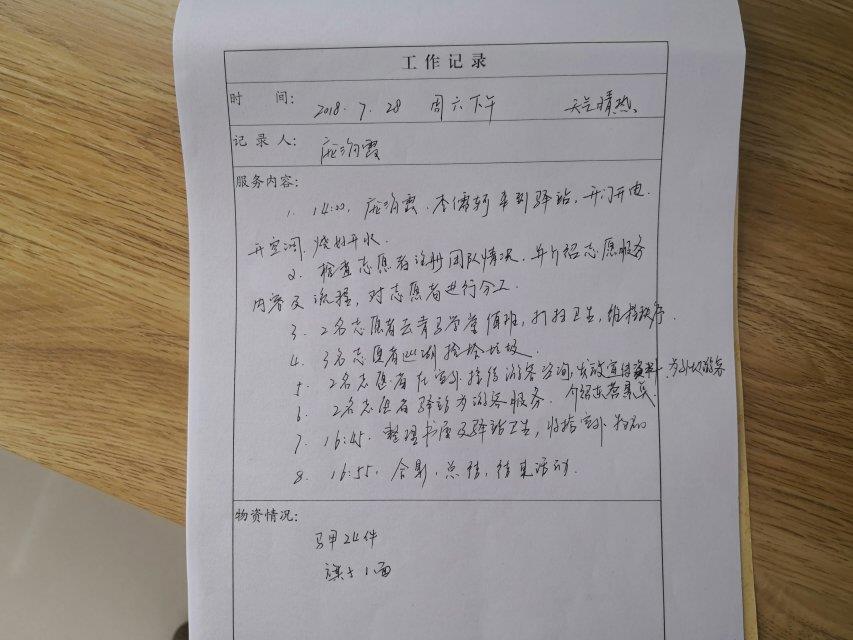 工作记录
时 间: 2018.7.28 周六下午 天气晴热、
记录人: 庞海霞
服务内容:
1. 14:00, 庞海霞、李儒轲来到驿站,开门开电、
开空调、烧好开水.
2. 检查志愿者注册团队情况,并介绍志愿服务
内容及流程,对志愿者进行分工.
3. 2名志愿者去青马学堂值班,打扫卫生,维持秩序.
4. 3名志愿者巡湖捡拾垃圾、
5. 2名志愿者在室外接待游客咨询,发放宣传资料、为外地游客
介绍东营景点
6. 2名志愿者驿站为游客服务.
7. 16:45. 整理书屋及驿站卫生,收拾室外物品
8. 16:55. 合影、总结,结束活动.
物资情况:
马甲24件
旗子1面